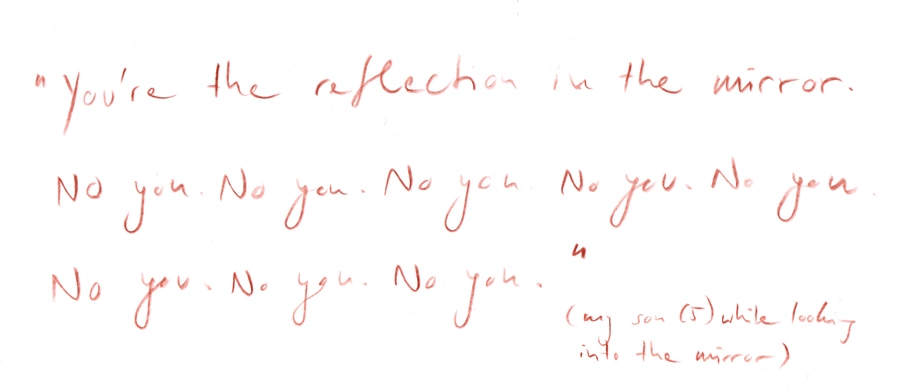 "You're the reflection in the mirror.
No you. No you. No you No you. No you.
No you. No you. No you."
(my son (5) while looking
into the mirror)